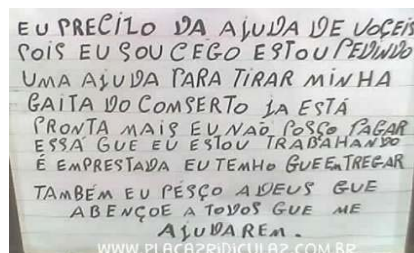 EU PRECIZO DA AJUDA DE VOÇEIS
POIS EU SOU CEGO ESTOU PEDINDO
UMA AJUDA PARA TIRAR MINHA
GAITA DO COMSERTO JA ESTÁ
PRONTA MAIS EU NAO POSÇO PAGAR
ESSA GUE EU ESTOU TRABAHANDO
É EMPRESTADA EU TEMHO GUE ENTREGAR
TAMBÉM EU PESÇO A DEUS GUE
ABENÇOE A TODOS GUE ME
AJUDAREM.
WWW.PLACAZRIDICULAZ.COM.BR